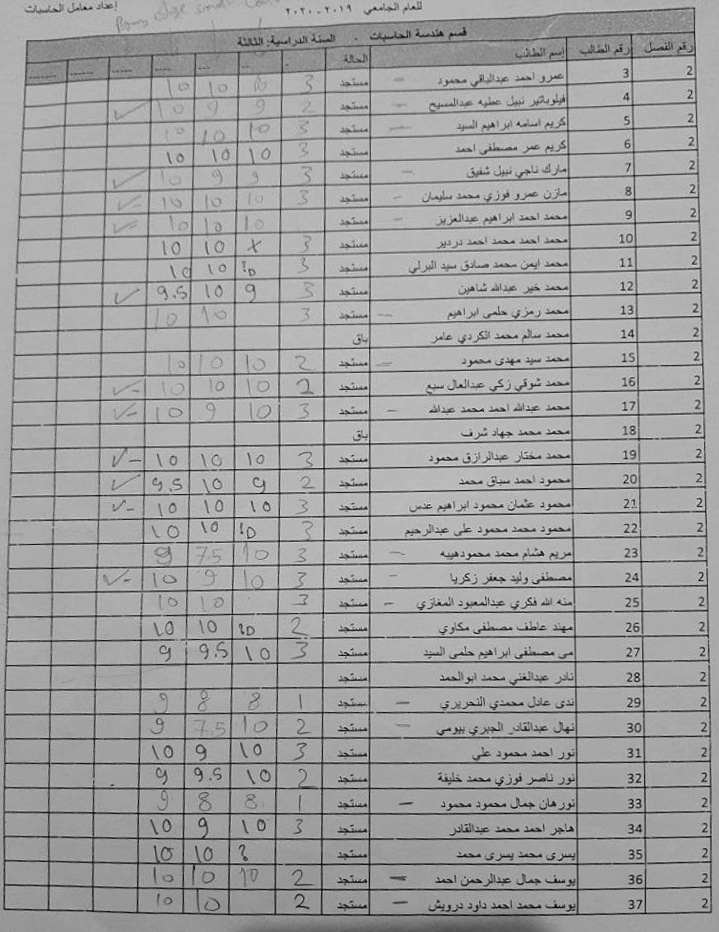 للعام الجامعي ٢٠١٩ - ٢٠٢٠ إعداد معامل الحاسبات
قسم هندسة الحاسبات - السنة الدراسية: الثالثة
رقم الفصل رقم الطالب إسم الطالب الحالة
2 3 عمرو احمد عبدالباقي محمود مستجد 3 10 10 10
2 4 فيلوباتير نبيل عطيه عبدالمسيح مستجد 2 9 9 10 ✓
2 5 كريم اسامه ابراهيم السيد مستجد 3 10 10 10
2 6 كريم عمر مصطفى احمد مستجد 3 10 10 10
2 7 مارك ناجي نبيل شفيق مستجد 3 9 9 10 ✓
2 8 مازن عمرو فوزي محمد سليمان مستجد 3 10 10 10 ✓
2 9 محمد احمد ابراهيم عبدالعزيز مستجد 10 10 10 ✓
2 10 محمد احمد محمد احمد دردير مستجد 3 x 10 10
2 11 محمد ايمن محمد صادق سيد البرلي مستجد 3 10 10
2 12 محمد خير عبدالله شاهين مستجد 3 9 10 9.5 ✓
2 13 محمد رمزي حلمى ابراهيم مستجد 3 10 10
2 14 محمد سالم محمد الكردي عامر باق
2 15 محمد سيد مهدى محمود مستجد 2 10 10 10
2 16 محمد شوقي زكي عبدالعال سبع مستجد 2 10 10 10 ✓-
2 17 محمد عبدالله احمد محمد عبدالله مستجد 3 10 9 10 ✓-
2 18 محمد محمد جهاد شرف باق
2 19 محمد مختار عبدالرازق محمود مستجد 3 10 10 10 ✓-
2 20 محمود احمد سباق محمد مستجد 2 9 10 9.5 ✓
2 21 محمود عثمان محمود ابراهيم عدس مستجد 3 10 10 10 ✓-
2 22 محمود محمد محمود على عبدالرحيم مستجد 3 10 10
2 23 مريم هشام محمد محمودهيبه مستجد 3 10 7.5 9
2 24 مصطفى وليد جعفر زكريا مستجد 3 10 9 10 ✓-
2 25 منه الله فكري عبدالمعبود المغازي مستجد 3 10 10
2 26 مهند عاطف مصطفى مكاوي مستجد 2 10 10
2 27 مى مصطفى ابراهيم حلمى السيد مستجد 3 10 9.5 9
2 28 نادر عبدالغني محمد ابوالحمد مستجد
2 29 ندى عادل محمدي النحريري مستجد 1 8 8 9
2 30 نهال عبدالقادر الجبري بيومي مستجد 2 10 7.5 9
2 31 نور احمد محمود علي مستجد 3 10 9 10
2 32 نور ناصر فوزي محمد خليفة مستجد 2 10 9.5 9
2 33 نورهان جمال محمود محمود مستجد 1 8 8 9
2 34 هاجر احمد محمد عبدالقادر مستجد 3 10 9 10
2 35 يسرى محمد يسرى محمد مستجد ? 10 10
2 36 يوسف جمال عبدالرحمن احمد مستجد 2 10 10 10
2 37 يوسف محمد احمد داود درويش مستجد 2 10 10